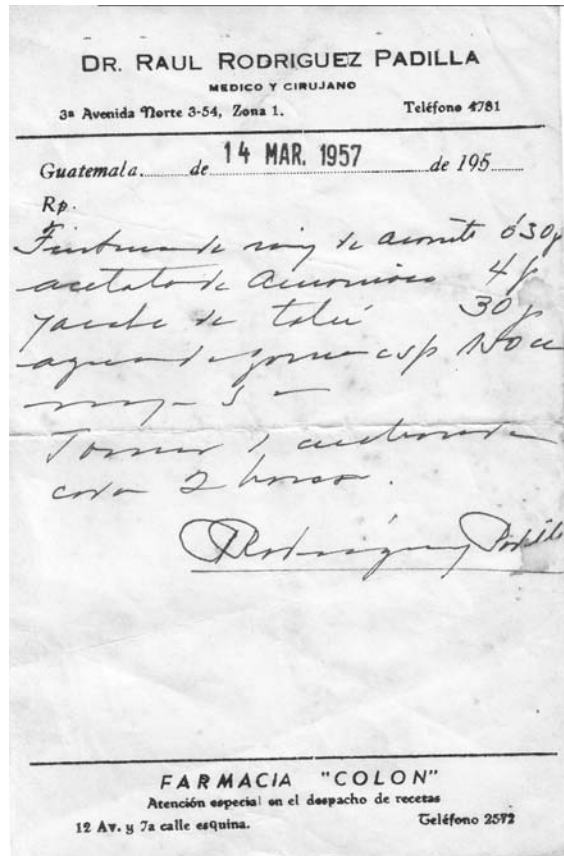 DR. RAUL RODRIGUEZ PADILLA
MEDICO Y CIRUJANO
3ª Avenida Norte 3-54, Zona 1. Teléfono 4781
Guatemala......de 14 MAR. 1957 de 195......
Rp.
Tintura de raiz de aconito 0.30g
acetato de amoniaco 4g
Jarabe de tolú 30g
agua de goma csp 150 cc
Tomar 1 cucharada
cada 2 horas.
Rodriguez Padilla
FARMACIA "COLON"
Atención especial en el despacho de recetas
12 Av. y 7a calle esquina. Teléfono 2572